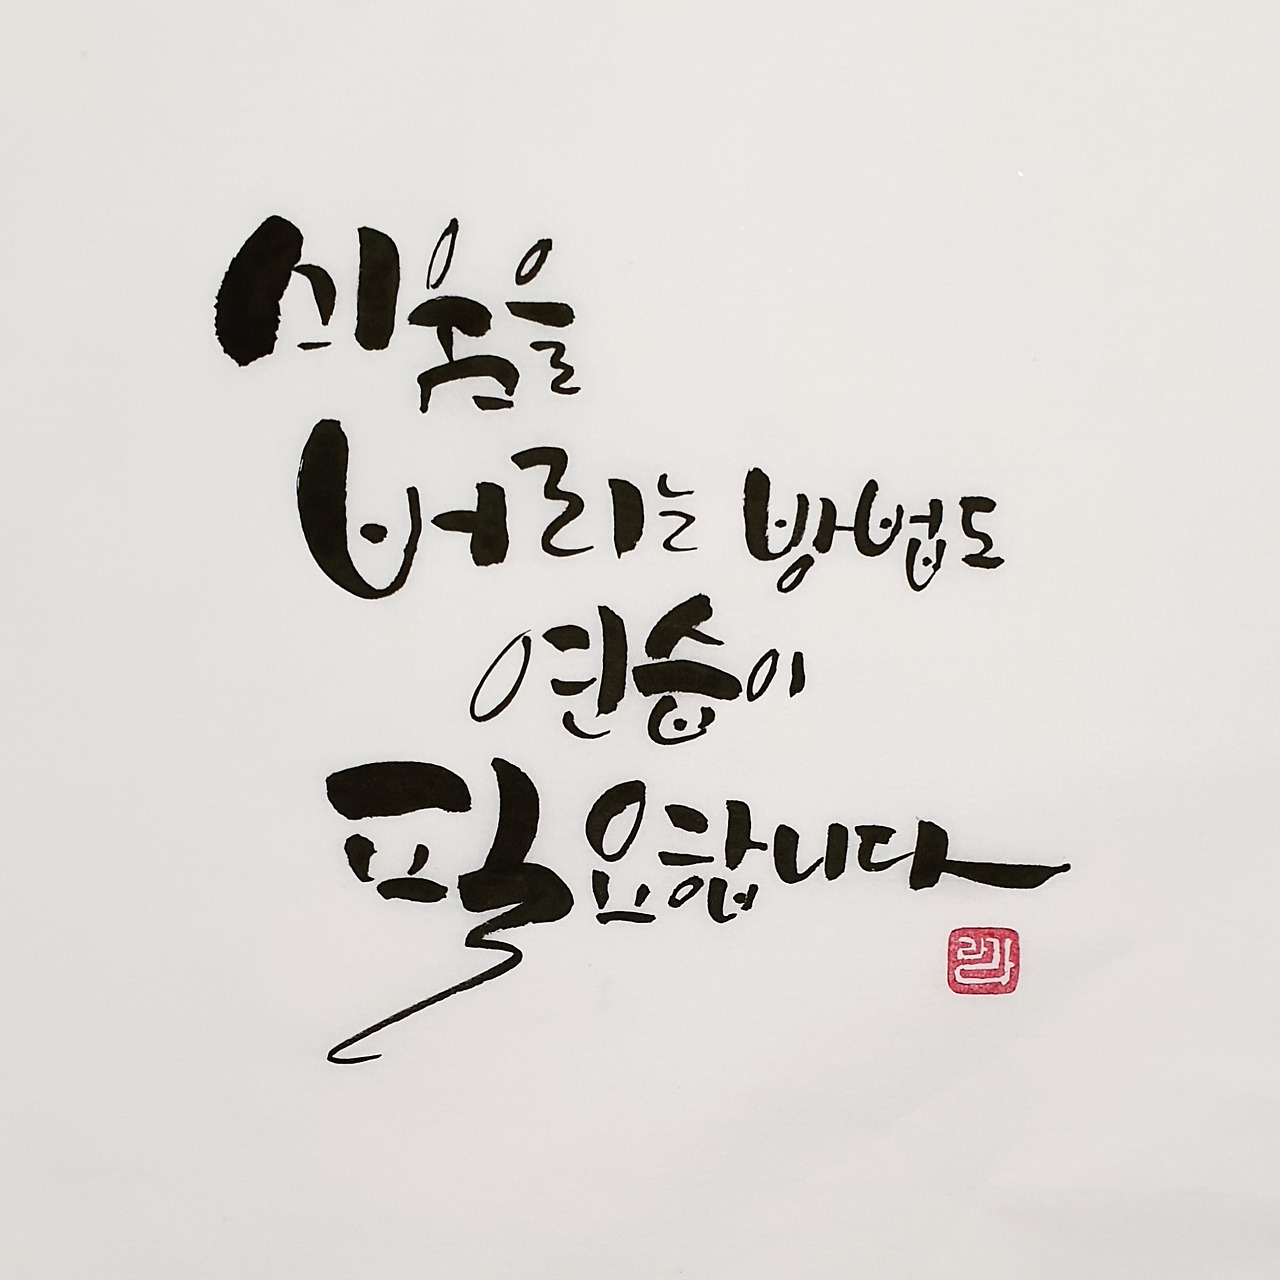 미움을
버리는 방법도
연습이
필요합니다